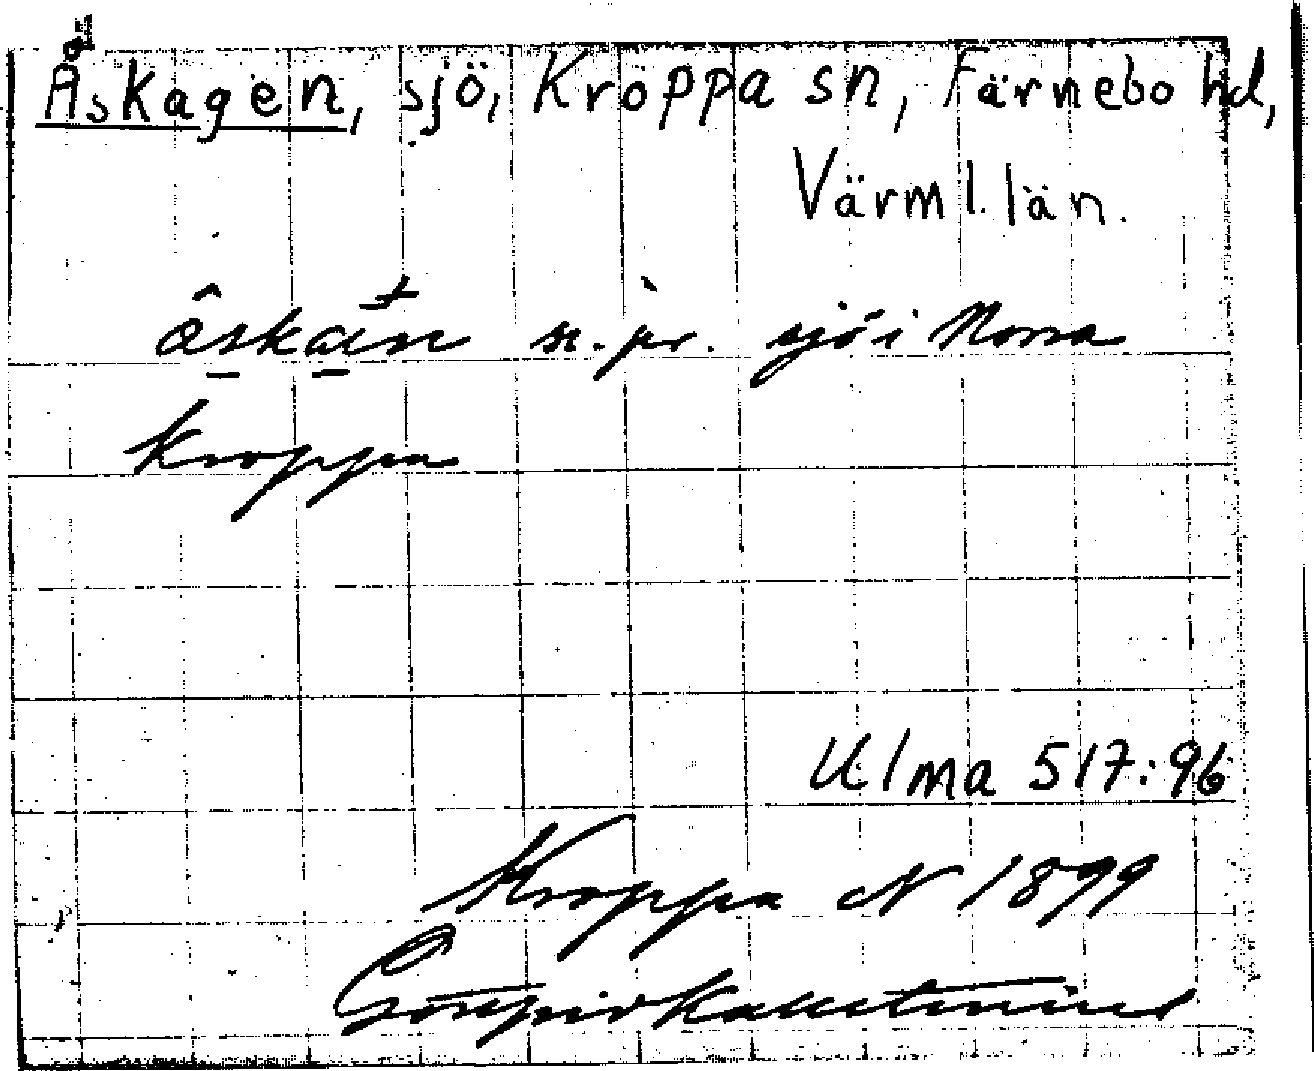 Åskagen, sjö, Kroppa sn, Färnebo hd,
Värml. län.
n. pr. sjö i Norra
Kroppa
Ulma 517:96
Kroppa N 1899